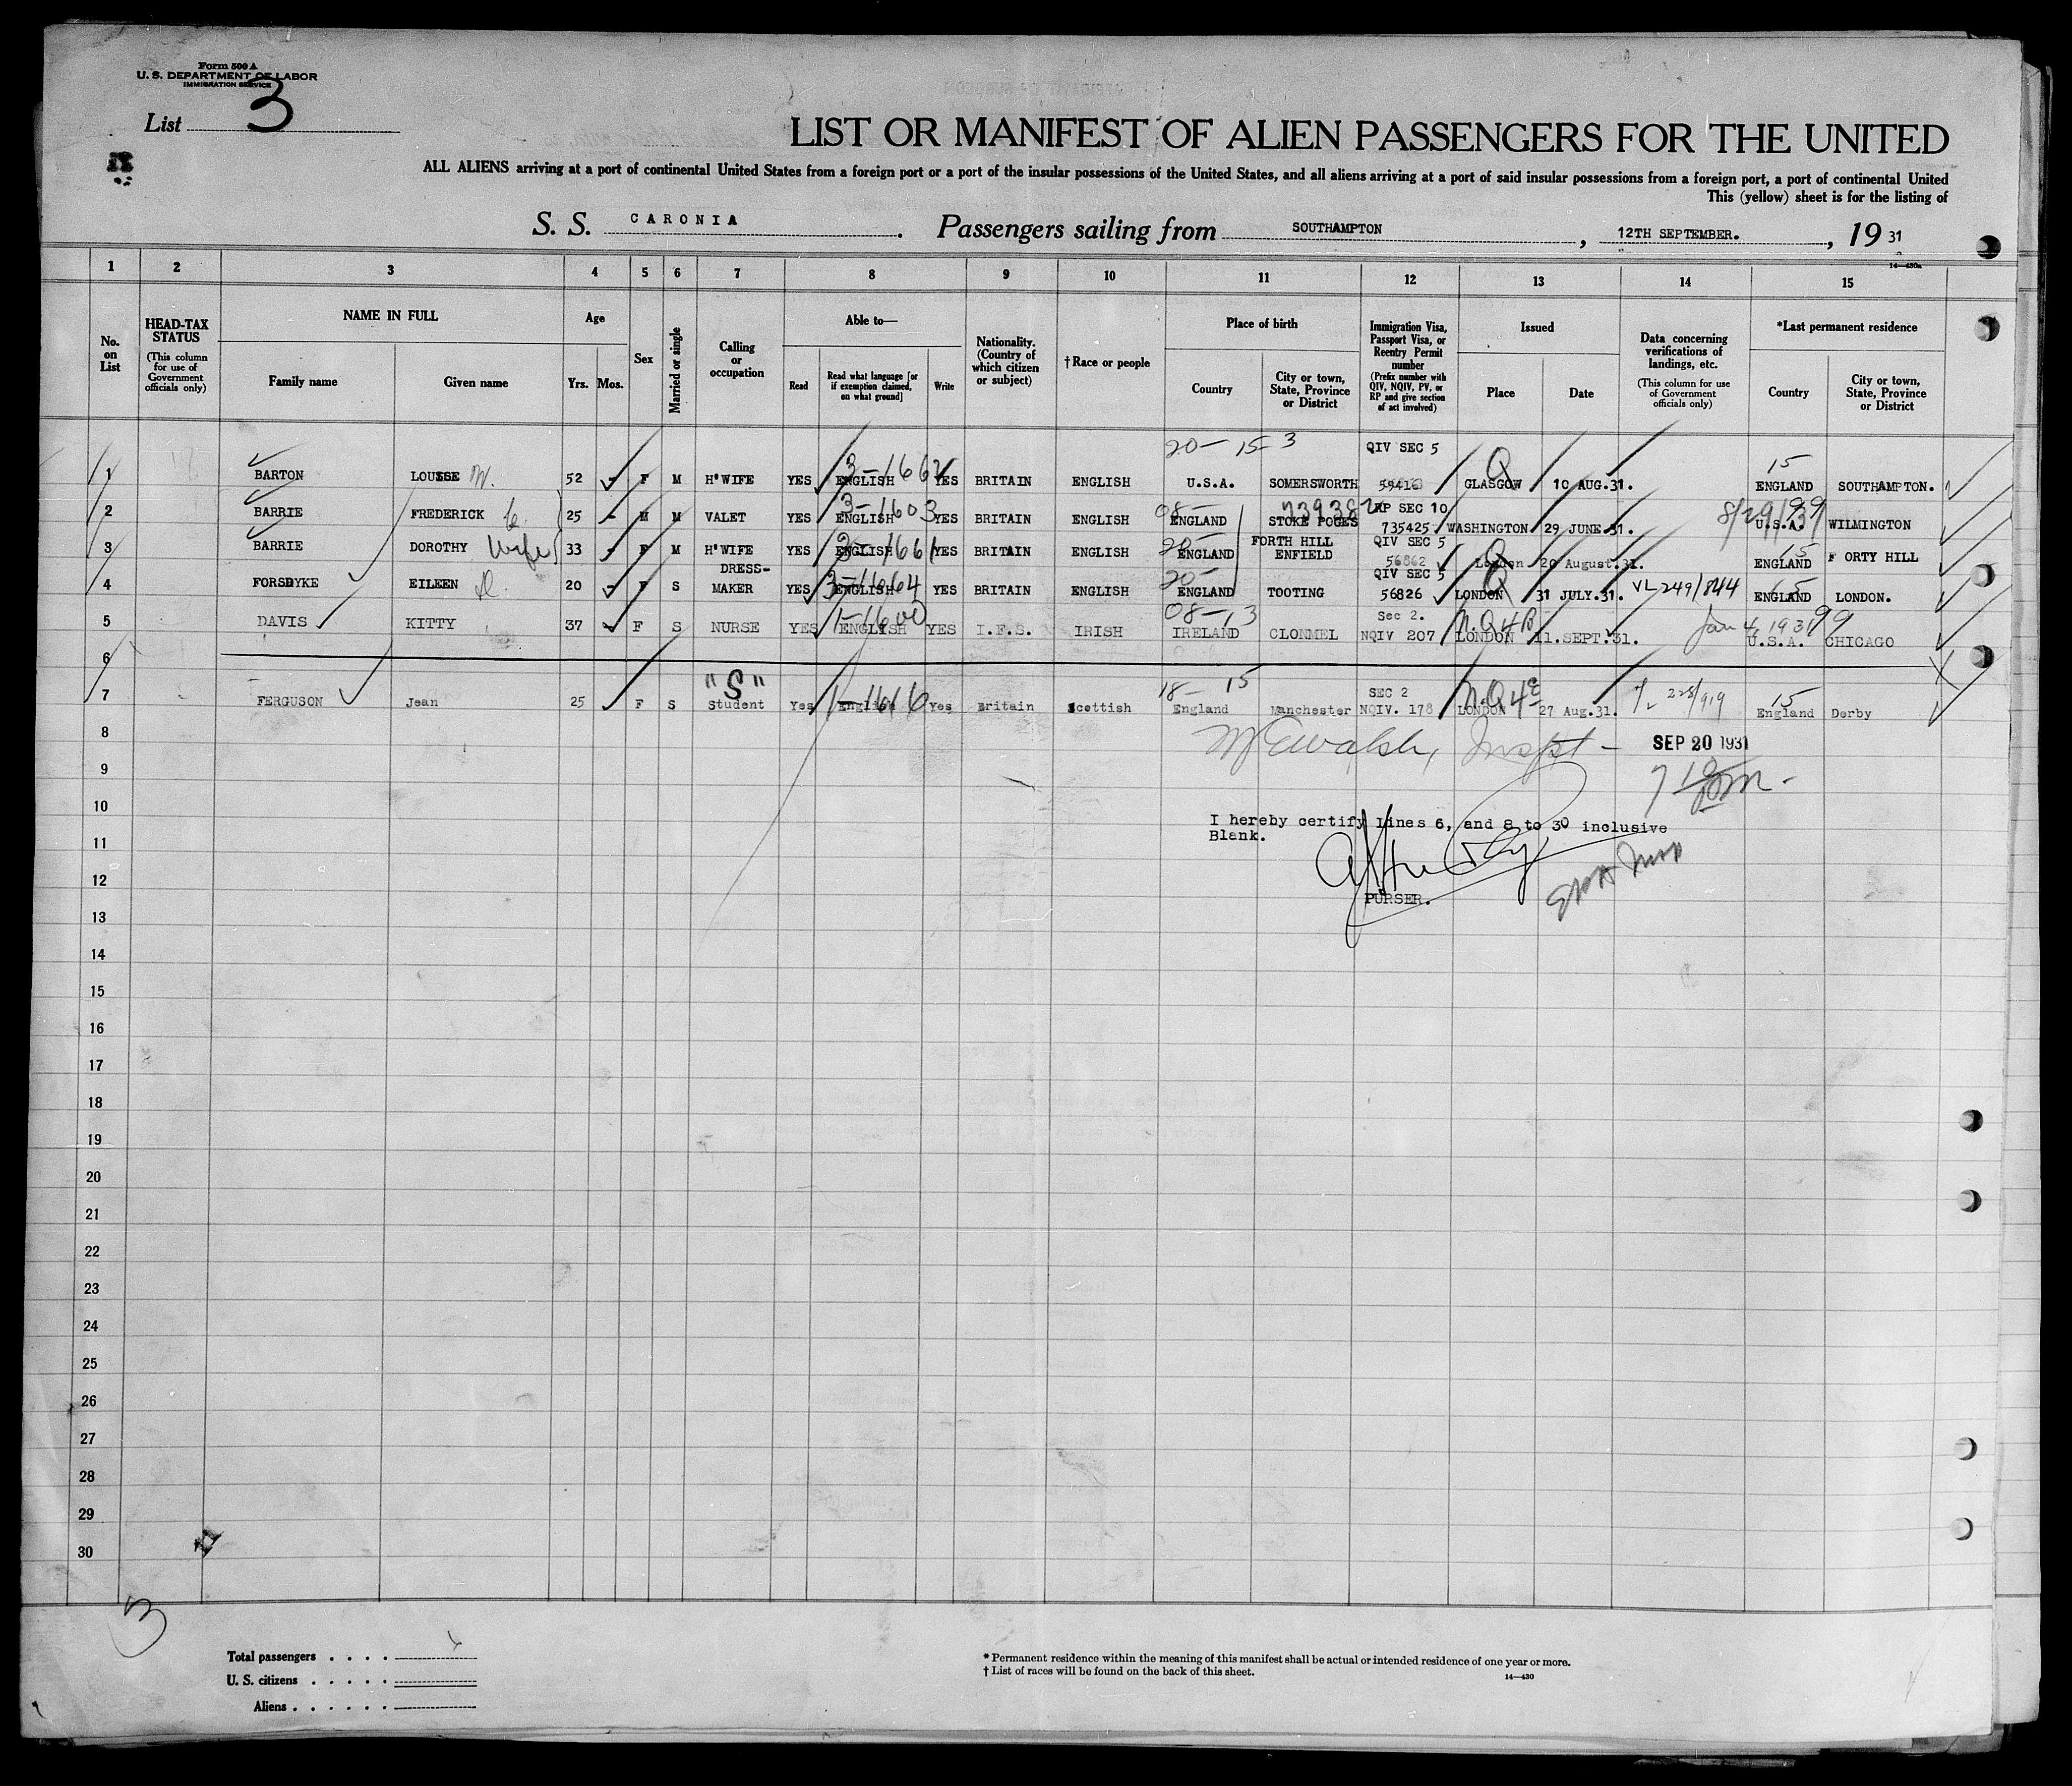 Form 500 A
U. S. DEPARTMENT OF LABOR
IMMIGRATION SERVICE
List 3
LIST OR MANIFEST OF ALIEN PASSENGERS FOR THE UNITED
ALL ALIENS arriving at a port of continental United States from a foreign port or a port of the insular possessions of the United States, and all aliens arriving at a port of said insular possessions from a foreign port, a port of continental United
This (yellow) sheet is for the listing of
S. S. CARONIA. Passengers sailing from SOUTHAMPTON, 12TH SEPTEMBER., 19 31
14—430a
1 2 3 4 5 6 7 8 9 10 11 12 13 14 15
No. on List
HEAD-TAX STATUS (This column for use of Government officials only)
NAME IN FULL
Family name Given name
Age
Yrs. Mos.
Sex
Married or single
Calling or occupation
Able to—
Read Read what language [or if exemption claimed, on what ground] Write
Nationality. (Country of which citizen or subject)
† Race or people
Place of birth
Country City or town, State, Province or District
Immigration Visa, Passport Visa, or Reentry Permit number (Prefix number with QIV, NQIV, PV, or RP and give section of act involved)
Issued
Place Date
Data concerning verifications of landings, etc. (This column for use of Government officials only)
*Last permanent residence
Country City or town, State, Province or District
20— 15-3 QIV SEC 5 15
1 BARTON LOUISE M. 52 - F M H'WIFE YES ENGLISH 3-1662 YES BRITAIN ENGLISH U.S.A. SOMERSWORTH 59416 Q GLASGOW 10 AUG.31. ENGLAND SOUTHAMPTON.
08— 739382 RP SEC 10 8/29/99
2 BARRIE FREDERICK C. 25 - M M VALET YES ENGLISH 3-1603 YES BRITAIN ENGLISH ENGLAND STOKE POGES 735425 WASHINGTON 29 JUNE.31. U.S.A. WILMINGTON
20— FORTH HILL QIV SEC 5 15
3 BARRIE DOROTHY Wife 33 - F M H'WIFE YES ENGLISH 3-1661 YES BRITAIN ENGLISH ENGLAND ENFIELD 56862 Q London 20 August.31. ENGLAND FORTY HILL
DRESS- 20— QIV SEC 5 15
4 FORSDYKE EILEEN D. 20 - F S MAKER YES ENGLISH 3-1664 YES BRITAIN ENGLISH ENGLAND TOOTING 56826 Q LONDON 31 JULY.31. VL 249/844 ENGLAND LONDON.
08—13 Sec 2. N.Q 4B Jan 4, 1931 99
5 DAVIS KITTY 37 - F S NURSE YES ENGLISH 1-1600 YES I.F.S. IRISH IRELAND CLONMEL NQIV 207 LONDON 11.SEPT.31. U.S.A. CHICAGO
6
"S" 18— 15 SEC 2 N.Q 4e 15
7 FERGUSON Jean 25 F S Student Yes English 1-1616 Yes Britain Scottish England Manchester NQIV. 178 LONDON 27 Aug.31. 228/919 England Derby
8 Inspt — SEP 20 1931
9
10
I hereby certify Lines 6, and 8 to 30 inclusive
Blank.
11
12
PURSER.
13
14
15
16
17
18
19
20
21
22
23
24
25
26
27
28
29
30
3
Total passengers . . . .
U. S. citizens . . . . .
Aliens . . . . . .
* Permanent residence within the meaning of this manifest shall be actual or intended residence of one year or more.
† List of races will be found on the back of this sheet.
14—430